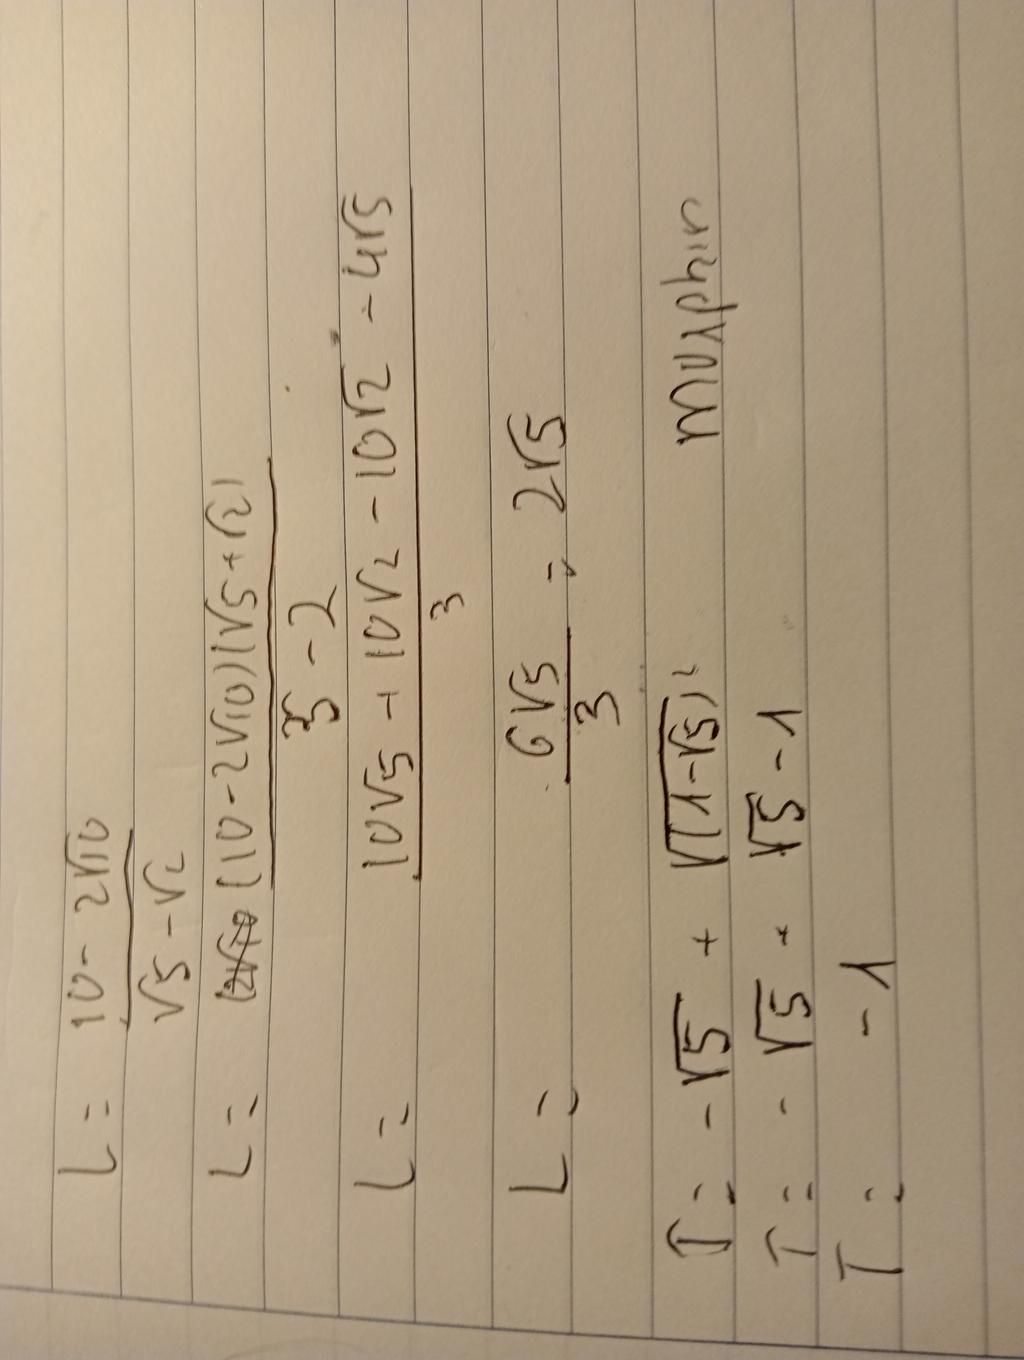 L = 10 - 2√10 / √5 - √2
L = (10 - 2√10)(√5 + √2) / 5 - 2
L = 10√5 + 10√2 - 10√2 - 4√5 / 3
L = 6√5 / 3 = 2√5
T = -√5 + √(1-√5)²
T = - √5 + √5 - 1
T = - 1